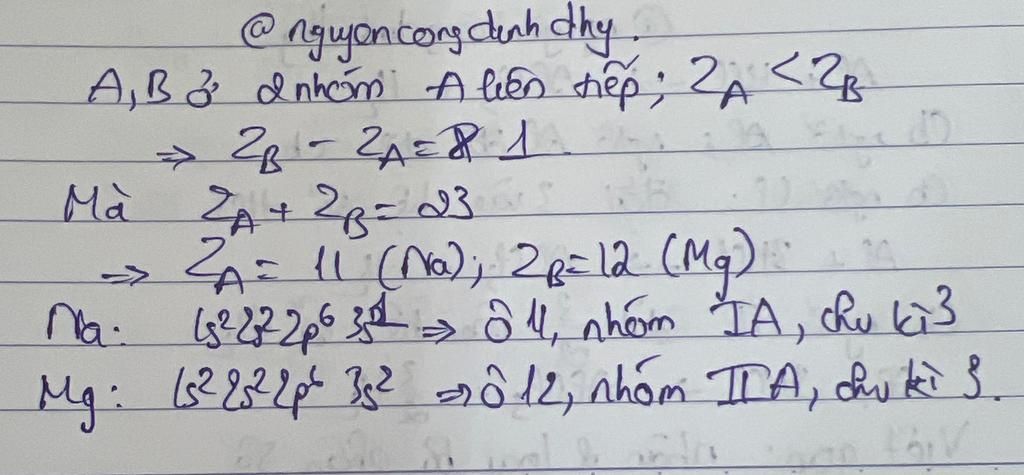 @nguyencongdinhdhy.
A, B ở 2 nhóm A liên tiếp; Z_A < Z_B
⇒ Z_B - Z_A = 1
Mà Z_A + Z_B = 23
⇒ Z_A = 11 (Na); Z_B = 12 (Mg)
Na: 1s² 2s² 2p⁶ 3s¹ ⇒ Ô 11, nhóm IA, chu kì 3
Mg: 1s² 2s² 2p⁶ 3s² ⇒ Ô 12, nhóm IIA, chu kì 3.